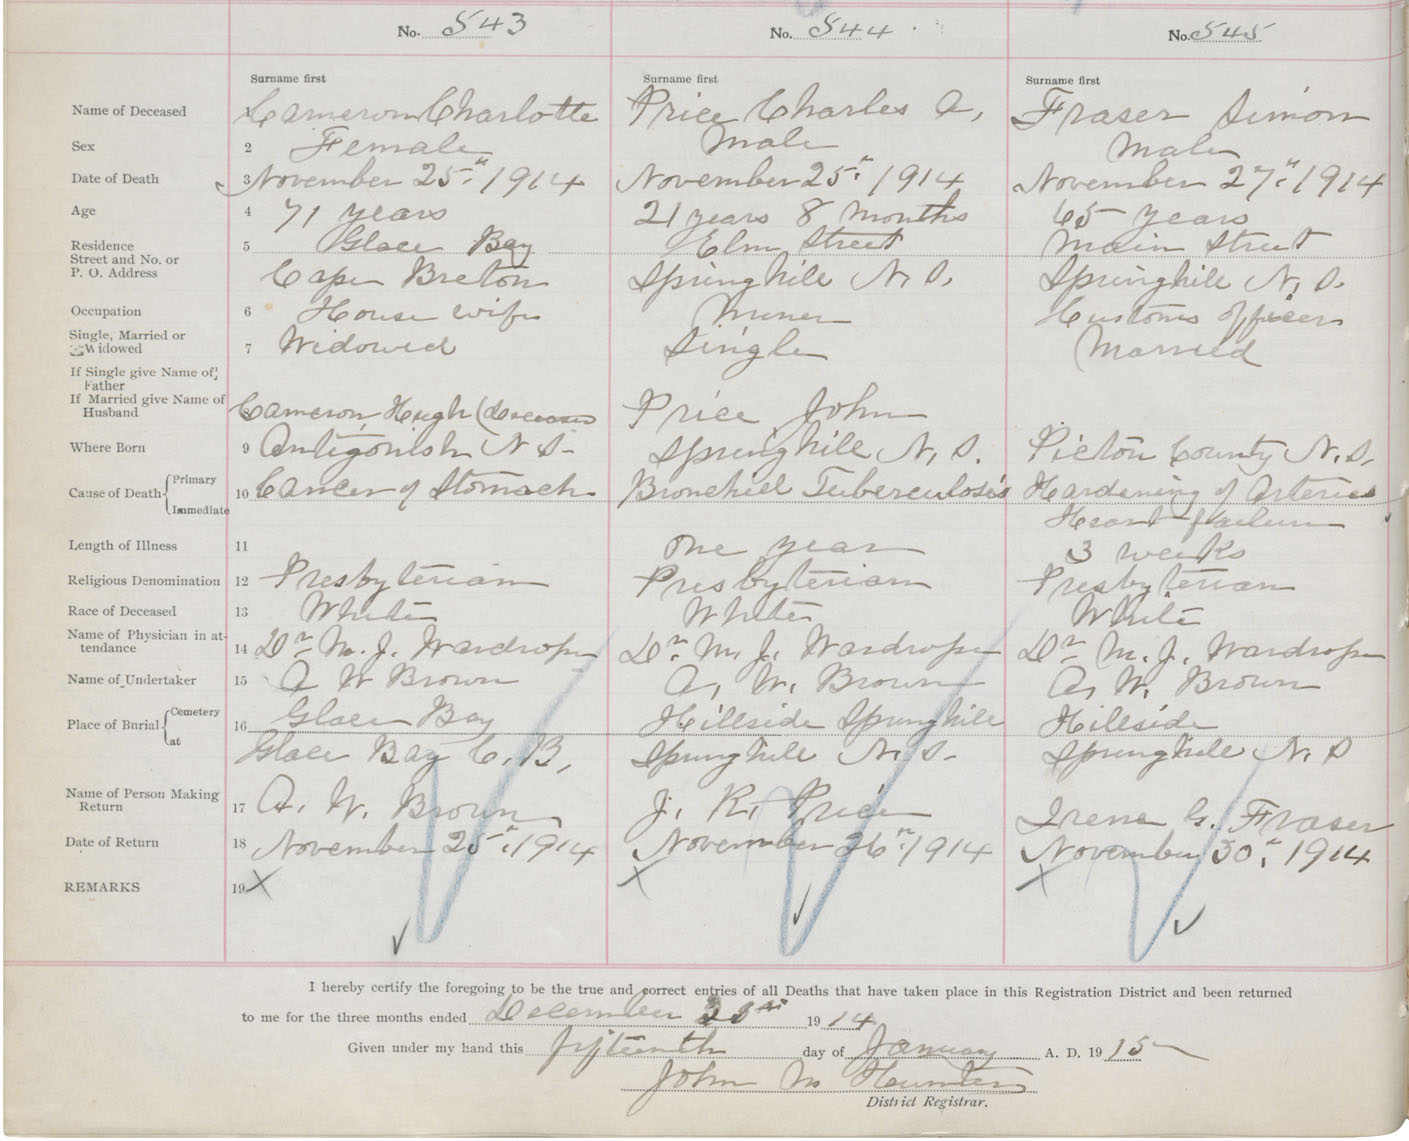 No. 543 No. 544 No. 545
Surname first Surname first Surname first
Name of Deceased 1 Cameron Charlotte Price Charles A. Fraser Simon
Sex 2 Female Male Male
Date of Death 3 November 25th 1914 November 25th 1914 November 27th 1914
Age 4 71 years 21 years 8 months 65 years
Residence 5 Glace Bay Elm Street Main Street
Street and No. or
P. O. Address Cape Breton Springhill N. S. Springhill N. S.
Occupation 6 House wife Miner Customs officer
Single, Married or
Widowed 7 Widowed Single Married
If Single give Name of
Father
If Married give Name of
Husband 8 Cameron, Hugh (deceased Price John
Where Born 9 Antigonish N S. Springhill N. S. Pictou County N. S.
Cause of Death Primary 10 Cancer of Stomach Bronchiel Tuberculosis Hardening of Arteries
Immediate Heart failure
Length of Illness 11 One year 3 weeks
Religious Denomination 12 Presbyterian Presbyterian Presbyterian
Race of Deceased 13 White White White
Name of Physician in at-
tendance 14 Dr. M. J. Wardrope Dr. M. J. Wardrope Dr. M. J. Wardrope
Name of Undertaker 15 A W Brown A. W. Brown A. W. Brown
Place of Burial Cemetery 16 Glace Bay Hillside Springhill Hillside
at Glace Bay C. B. Springhill N. S. Springhill N. S
Name of Person Making
Return 17 A. W. Brown J. R. Price Irene G. Fraser
Date of Return 18 November 25th 1914 November 26th 1914 November 30th 1914
REMARKS 19 X X X
I hereby certify the foregoing to be the true and correct entries of all Deaths that have taken place in this Registration District and been returned
to me for the three months ended December 1914
Given under my hand this fifteenth day of January A. D. 1915
John M Hunter
District Registrar.